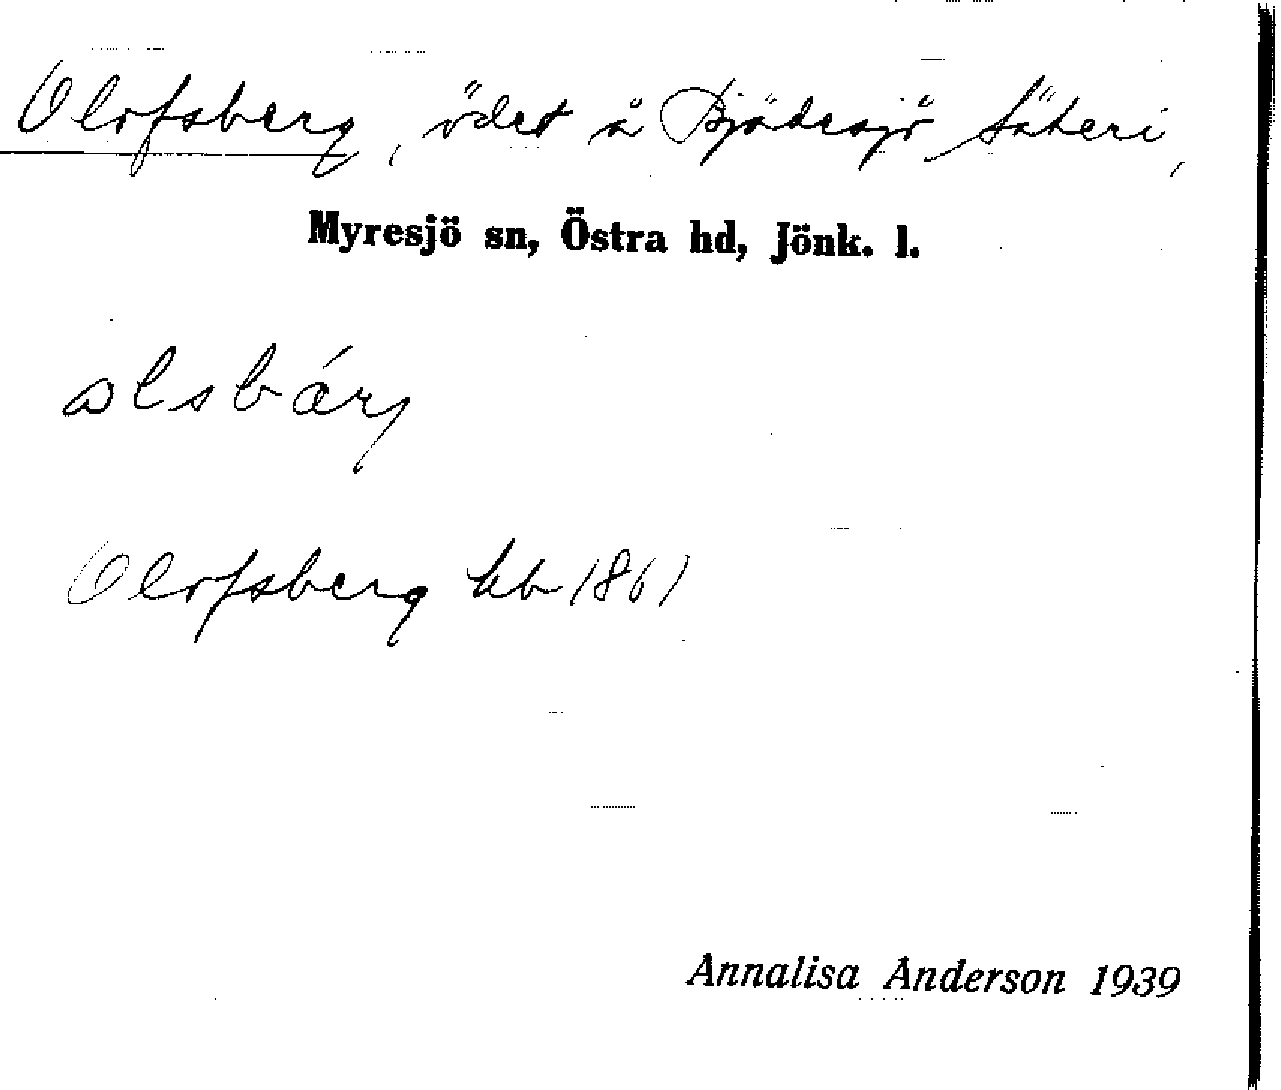 Olofsberg, ödet å Bjädesjö Säteri,
Myresjö sn, Östra hd, Jönk. l.
Olofsberg kb 1861
Annalisa Anderson 1939